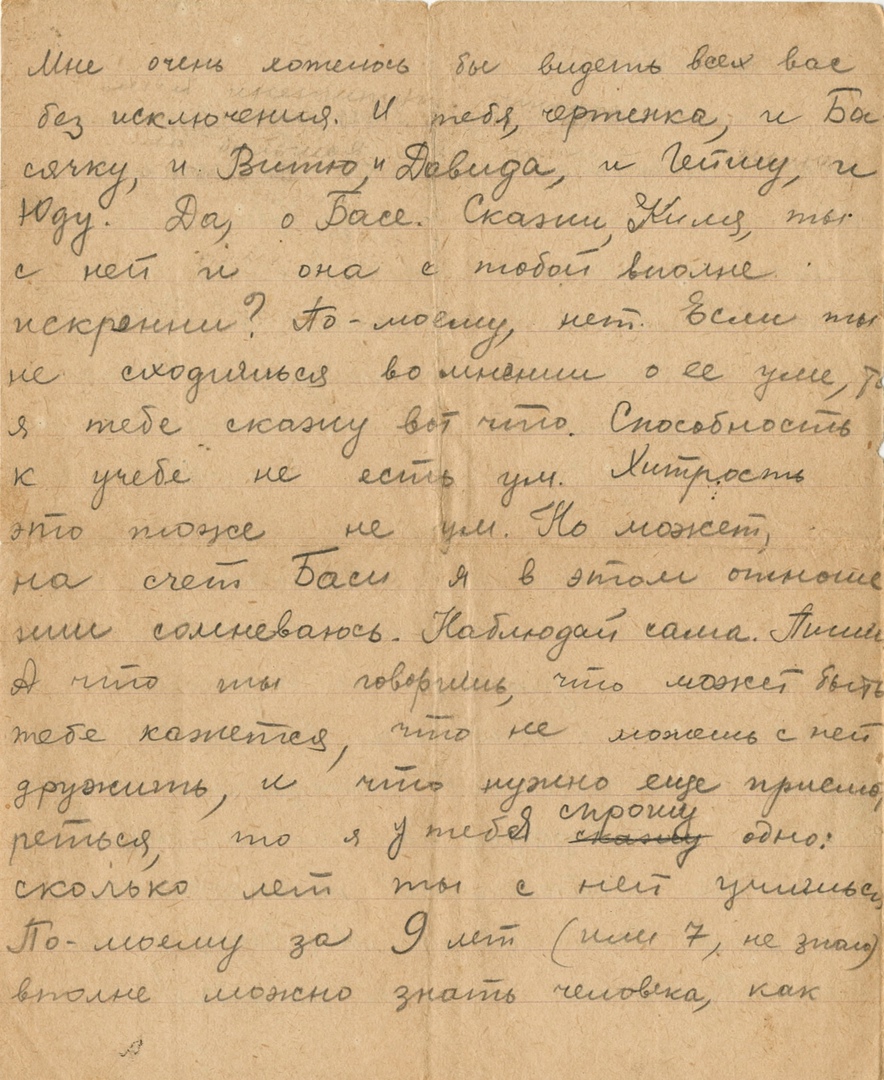 Мне очень хотелось бы видеть всех вас
без исключения. И тебя, чертенка, и Ба
сячку, и Витю, и Давида, и Гетту, и
Юду. Да, о Басе. Скажи, Киля, ты
с ней и она с тобой вполне
искренни? По-моему, нет. Если ты
не сходишься во мнении о ее уме, то
я тебе скажу вот что. Способность
к учебе не есть ум. Хитрость
это тоже не ум. Но может,
на счет Баси я в этом отноше
нии сомневаюсь. Наблюдай сама. Пиши
А что ты говоришь, что может быть
тебе кажется, что не можешь с ней
дружить, и что нужно еще присмот
реться, то я у тебя спрошу скажу одно:
сколько лет ты с ней учишься
По-моему за 9 лет (или 7, не знаю)
вполне можно знать человека, как